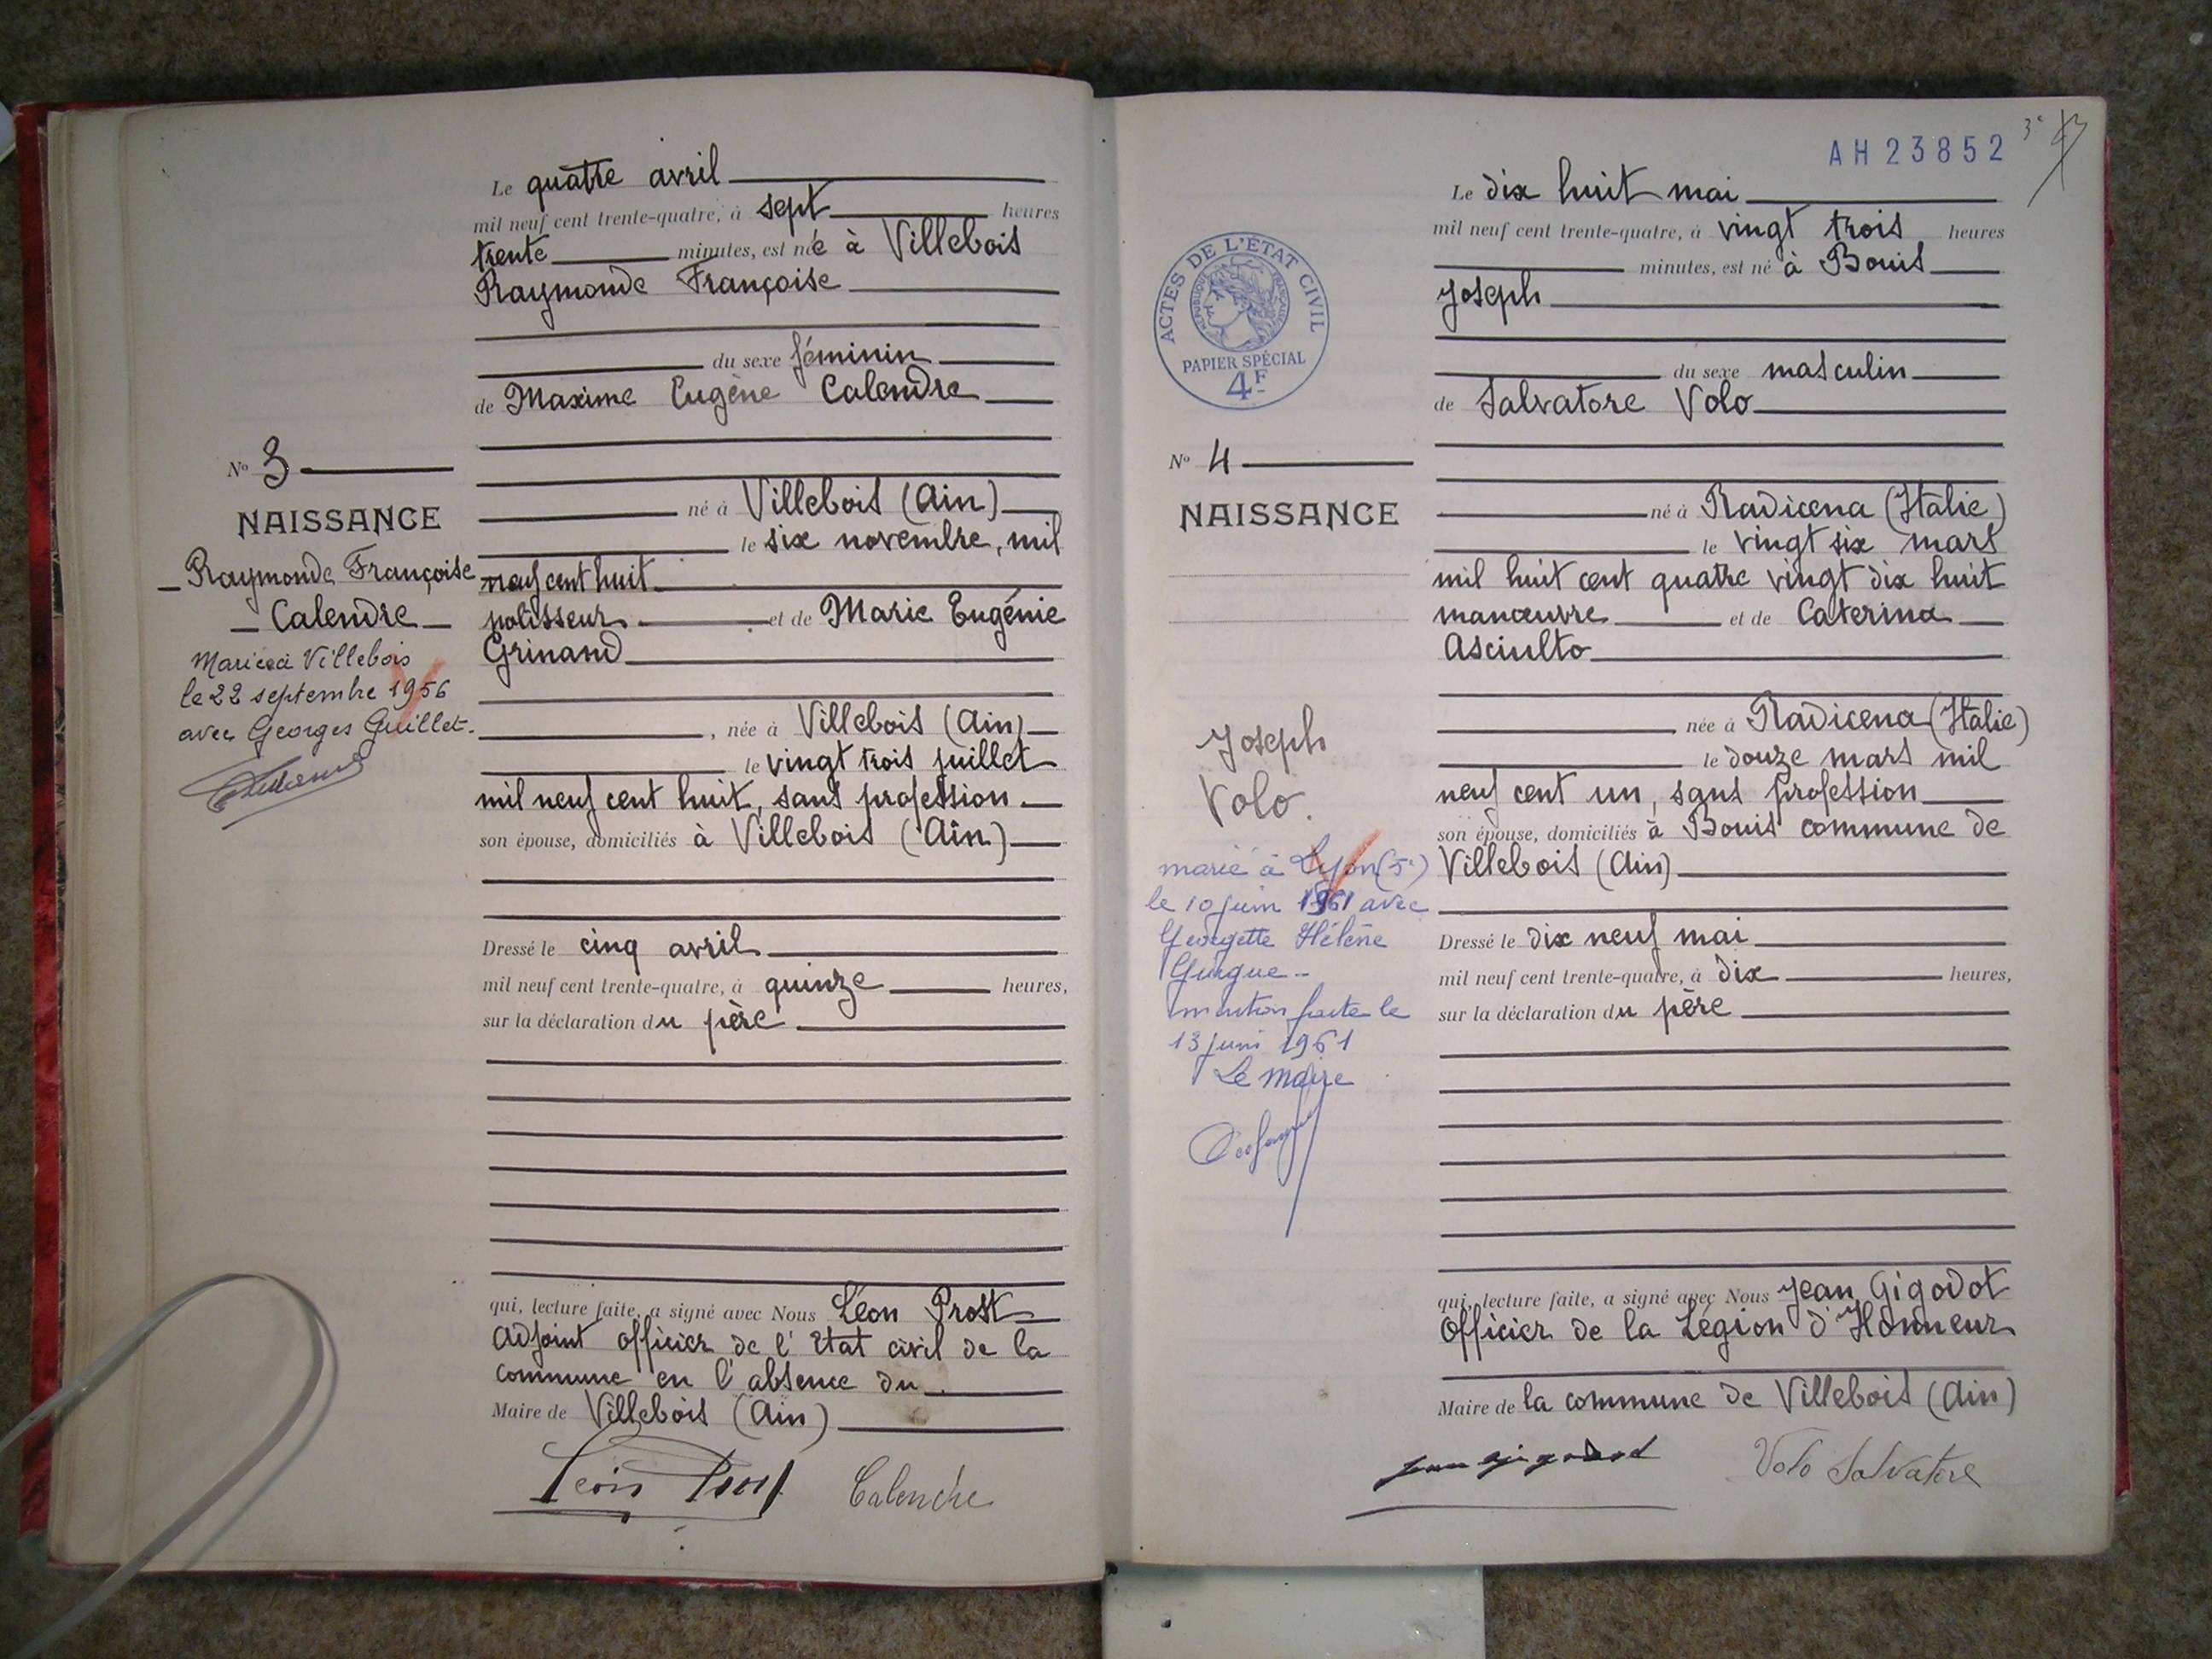 Le quatre avril
mil neuf cent trente-quatre, à sept heures
trente minutes, est née à Villebois
Raymonde Françoise
du sexe féminin
de Maxime Eugène Calendre
né à Villebois (Ain)
le six novembre, mil
neuf cent huit
polisseur et de Marie Eugénie
Grinand
, née à Villebois (Ain)
le vingt trois juillet
mil neuf cent huit, sans profession
son épouse, domiciliés à Villebois (Ain)
Dressé le cinq avril
mil neuf cent trente-quatre, à quinze heures,
sur la déclaration du père
qui, lecture faite, a signé avec Nous Léon Prost
Adjoint officier de l'Etat civil de la
commune en l'absence du
Maire de Villebois (Ain)
Léon Prost Calendre
No 3
NAISSANCE
Raymonde Françoise
Calendre
Mariée à Villebois
le 22 septembre 1956
avec Georges Guillet.
AH 23852
3e
Le dix huit mai
mil neuf cent trente-quatre, à vingt trois heures
minutes, est né à Bouis
Joseph
du sexe masculin
de Salvatore Volo
né à Radicena (Italie)
le vingt six mars
mil huit cent quatre vingt dix huit
manœuvre et de Caterina
Asciulto
née à Radicena (Italie)
le douze mars mil
neuf cent un, sans profession
son épouse, domiciliés à Bouis commune de
Villebois (Ain)
Dressé le dix neuf mai
mil neuf cent trente-quatre, à dix heures,
sur la déclaration du père
qui, lecture faite, a signé avec Nous Jean Gigodot
Officier de la Légion d'Honneur
Maire de la commune de Villebois (Ain)
Jean Gigodot Volo Salvatore
ACTES DE L'ÉTAT CIVIL
RÉPUBLIQUE FRANÇAISE
PAPIER SPÉCIAL
4F
No 4
NAISSANCE
Joseph
Volo.
marié à Lyon (5e)
le 10 juin 1961 avec
Georgette Hélène
Guigue -
mention faite le
13 juin 1961
Le maire